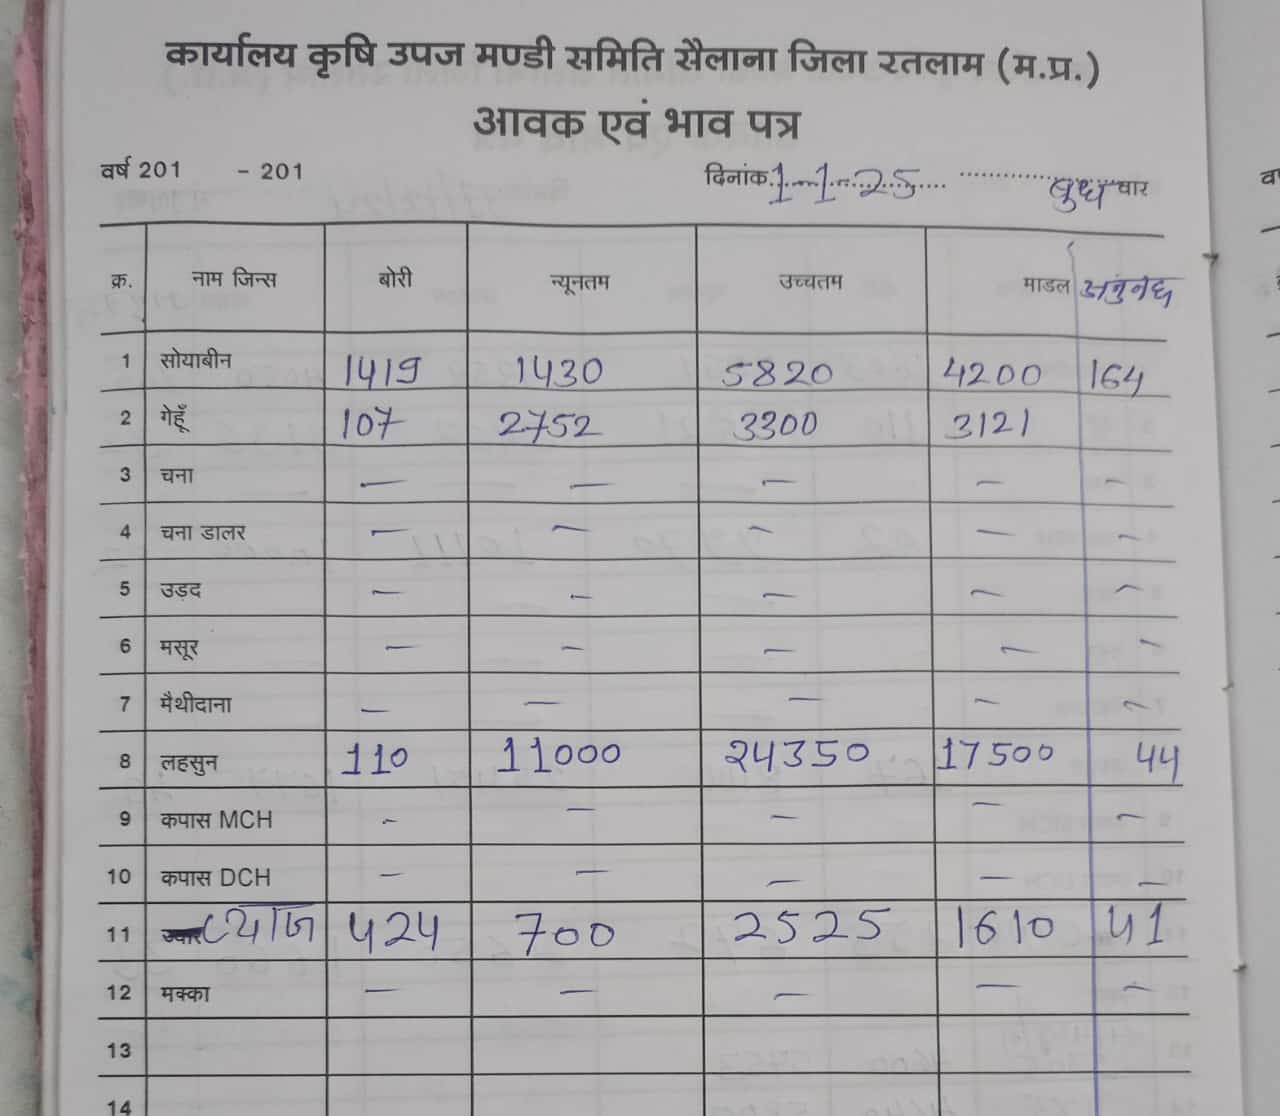 कार्यालय कृषि उपज मण्डी समिति सैलाना जिला रतलाम (म.प्र.)
आवक एवं भाव पत्र
वर्ष 201 - 201 दिनांक 1-1-25 बुध वार
क्र. नाम जिन्स बोरी न्यूनतम उच्चतम माडल अनुबंध
1 सोयाबीन 1419 1430 5820 4200 164
2 गेहूँ 107 2752 3300 3121
3 चना — — — — —
4 चना डालर — — — — —
5 उड़द — — — — —
6 मसूर — — — — —
7 मैथीदाना — — — — —
8 लहसुन 110 11000 24350 17500 44
9 कपास MCH — — — — —
10 कपास DCH — — — — —
11 ज्वार प्याज 424 700 2525 1610 41
12 मक्का — — — — —
13
14